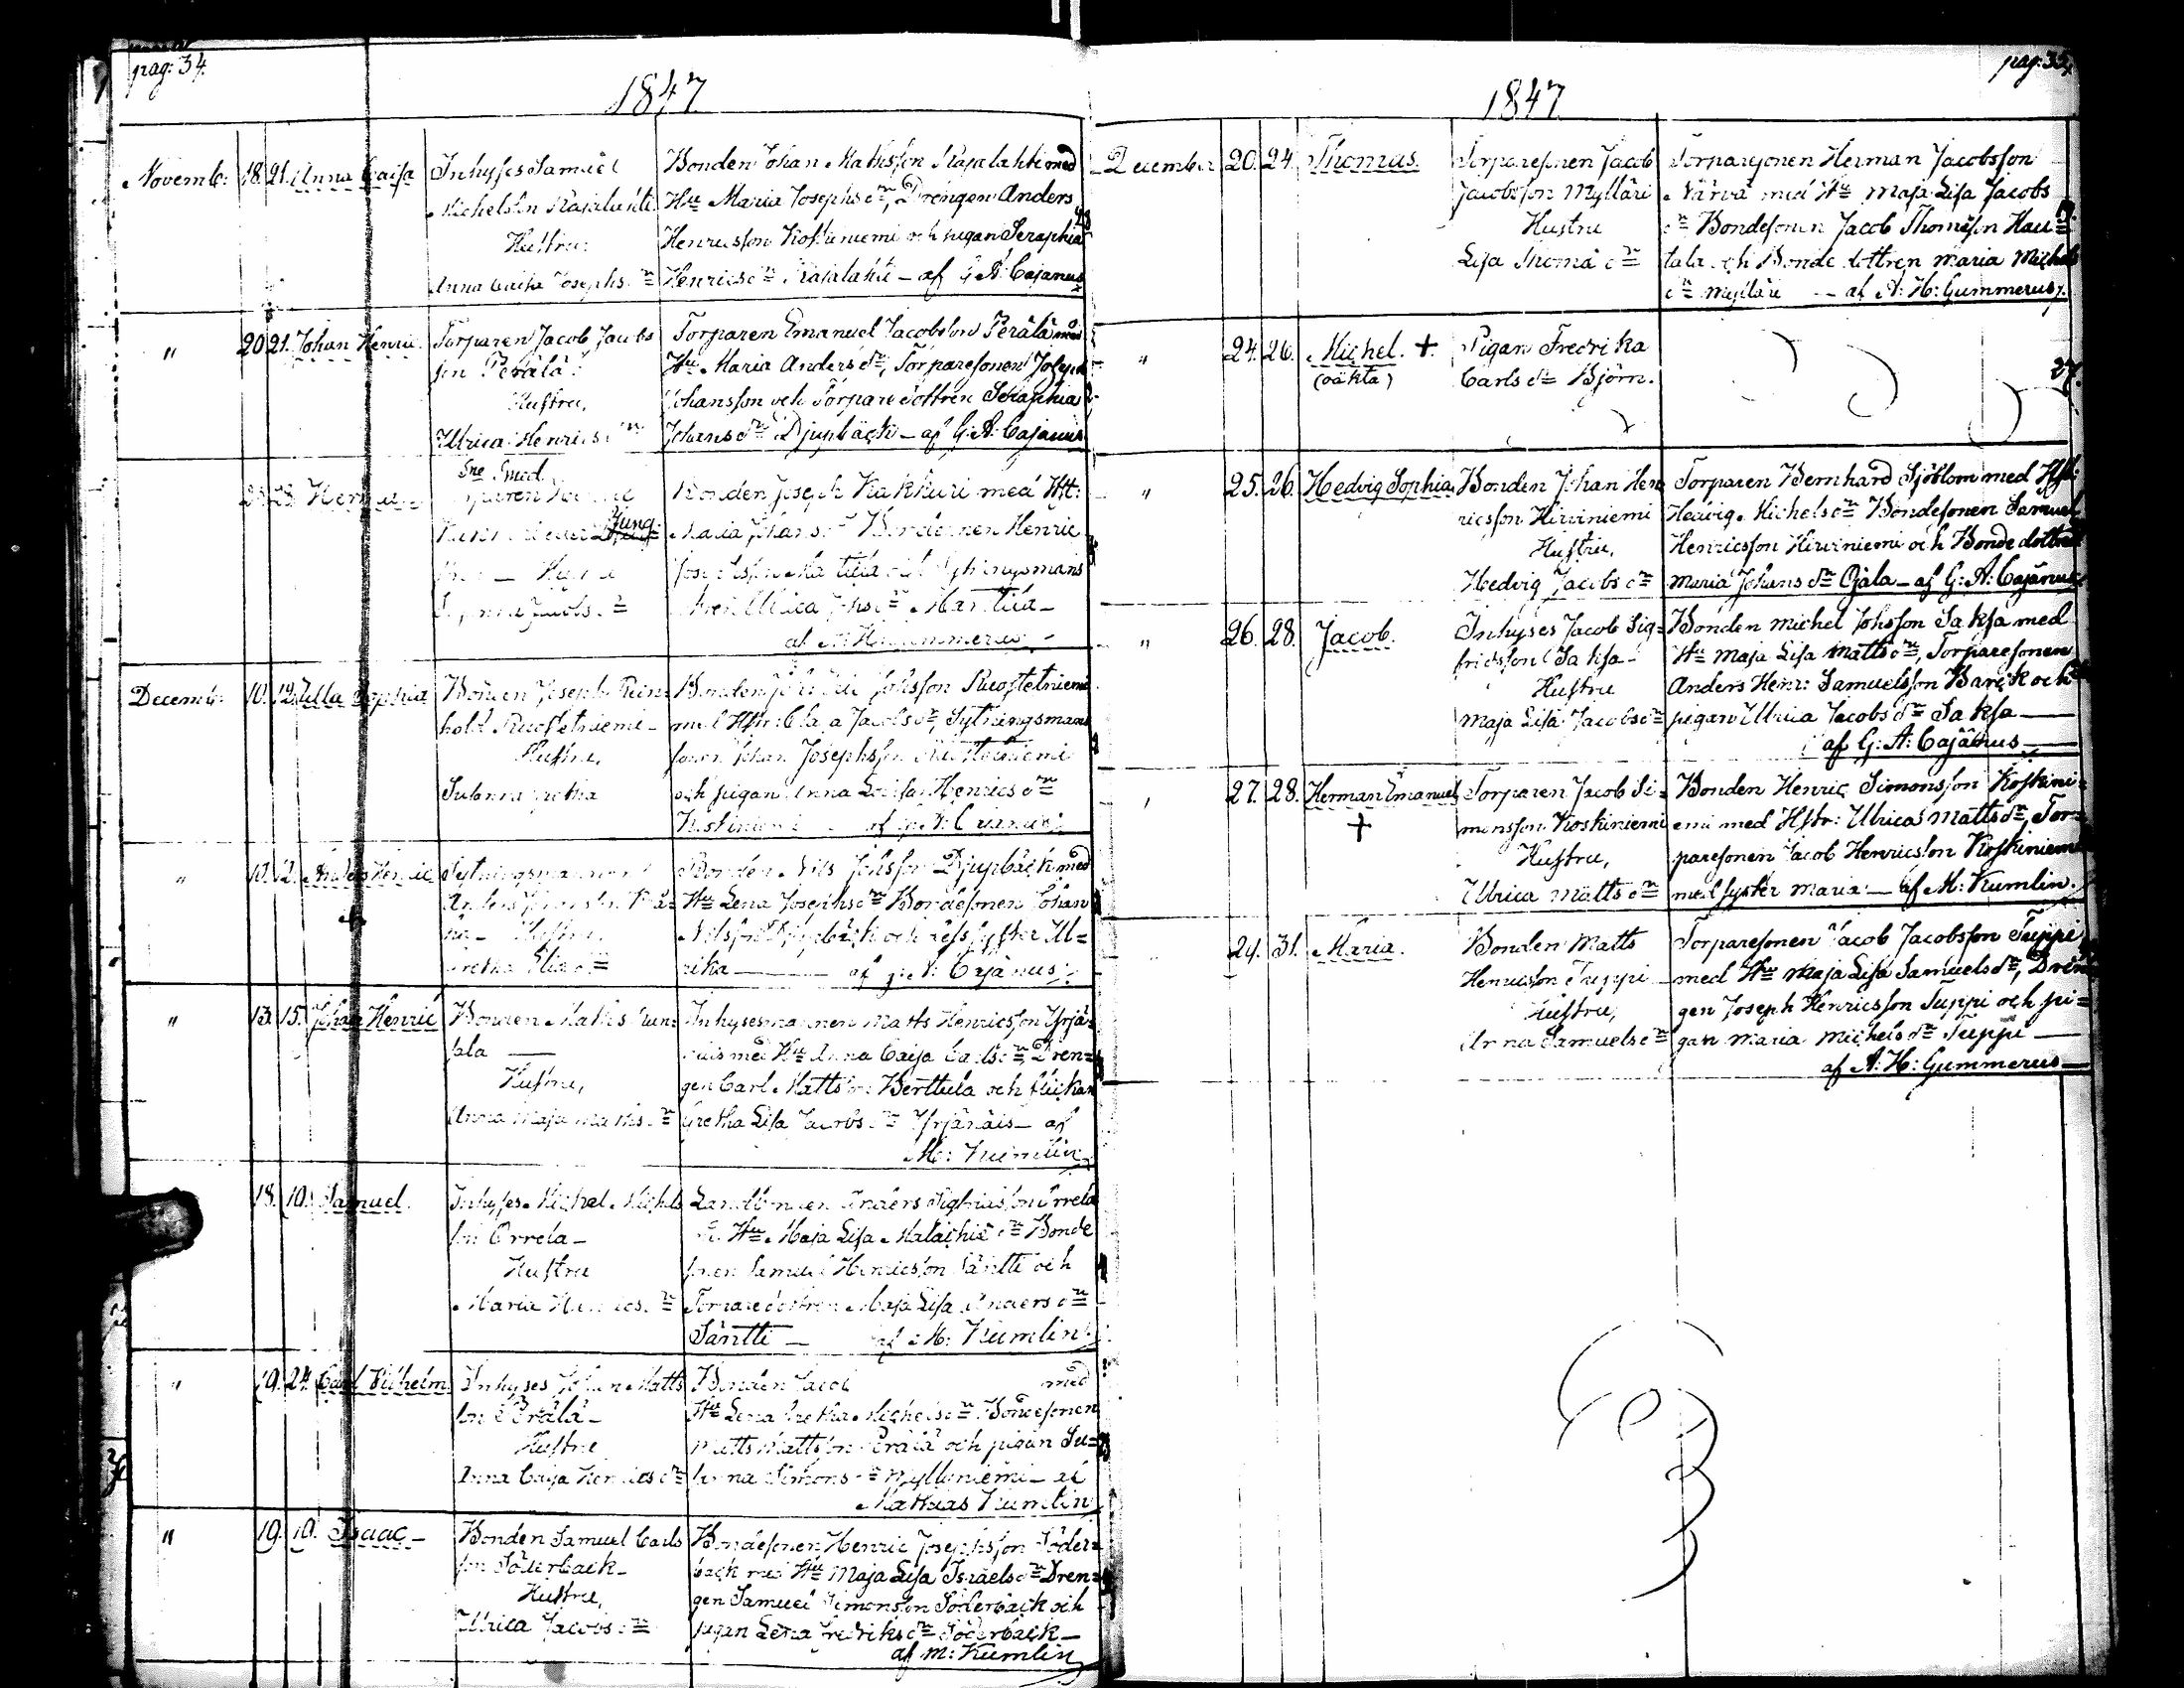 pag: 34.
1847
Novemb: 18. 21. Anna Caisa
Inhyses Samuel
Michelsson Rajalahti
Hustru
Anna Caisa Josephs dr
Bonden Johan Mathsson Rajalahti med
Hu Maria Josephs dr, Drengen Anders
Henricsson Koskiniemi och pigan Seraphia
Henrics dr Rajalahti - af G. A. Cajanus
" 20 21. Johan Henric.
Torparen Jacob Jacobs
son Perälä
Hustru,
Ulrica Henrics dr
Torparen Emanuel Jacobsson Perälä med
Hu Maria Anders dr, Torparesonen Joseph
Johansson och Torpare dottren Seraphia
Johans dr Djupbäck - af G. A. Cajanus
Herman
Sne Smed
Ljung
Hustru
Bonden Joseph Kakkuri med Hst:
Maria Johans dr Bondesonen Henric
Josephsson Mattila och Sytningsmans
Ulrica Johs dr Mattila -
af A: H: Gummerus -
Decemb: 10. 12. Ulla Sophia
Bonden Joseph Rein-
hold Ruostetniemi -
Hustru,
Susanna Gretha
Johsson Ruostetniemi
med Hstr: Jacobs dr, Sytningsmans
sonen Johan Josephsson Ruostetniemi
och pigan Anna Lovisa Henrics dr
Koskiniemi af G. A. Cajanus
" 10. 12. Anders Henric
Sytningsmannen
Anders
Hustru,
Gretha Elias dr
Bonden Nils Johsson Djupbäck med
Hu Lena Josephs dr Bondesonen Johan
Nilsson Djupbäck och dess syster Ul=
rika - af G. A: Cajanus
" 13. 15. Johan Henric
Bonden Maths
sala -
Hustru,
Anna Maja Maths dr
Inhysesmannen Matts Henricsson Yrjä-
näis med Hu Anna Caisa Carls dr, Dren=
gen Carl Mattsson Berttula och flickan
Gretha Lisa Jacobs dr Yrjänäis - af
M: Kumlin
18. 19. Samuel.
Inhyses Michel Michels
son Orrela -
Hustru
Maria Henrics dr
Landbonden Anders Sigfridsson Orrela
m. Hu Maja Lisa Malachie dr Bonde
sonen Samuel Henricsson Säntti och
Torpare dottren Maja Lisa Anders dr
Säntti - af M: Kumlin
" 19. 24. Carl Vilhelm
Inhyses Johan Matts
son Perälä -
Hustru
Anna Caisa Henrics dr
Bonden Jacob med
Hu Lena Gretha Michels dr Bondesonen
Matts Mattsson Perälä och pigan Su=
sanna Simons dr Myllyniemi - af
Mathias Kumlin
" 19. 19. Isaac -
Bonden Samuel Carls
son Söderback -
Hustru,
Ulrica Jacobs dr
Bondesonen Henric Josephsson Söder=
back med Hu Maja Lisa Israels dr Dren=
gen Samuel Simonsson Söderback och
pigan Lena Fredriks dr Söderback -
af M: Kumlin
pag: 35.
1847
December 20. 24. Thomas.
Torparesonen Jacob
Jacobsson Mylläri
Hustru
Lisa Thomæ dr
Torparsonen Herman Jacobsson
Närvä med Hu Maja Lisa Jacobs
dr Bondesonen Jacob Thomsson Hau=
tala och Bonde dottren Maria Michels
dr Mylläri - af A: H: Gummerus.
" 24. 26. Michel. +
(oäkta)
Pigan Fredrika
Carls dr Björn.
27.
" 25. 26. Hedvig Sophia
Bonden Johan Hen
ricsson Hirviniemi
Hustru,
Hedvig Jacobs dr
Torparen Bernhard Sjöblom med Hst:
Hedvig Michels dr Bondesonen Samuel
Henricsson Hirviniemi och Bonde dottren
Maria Johans dr Ojala - af G: A: Cajanus
" 26. 28. Jacob.
Inhyses Jacob Sig=
fridsson Saksa -
Hustru
Maja Lisa Jacobs dr
Bonden Michel Johsson Saksa med
Hu Maja Lisa Matts dr, Torparesonen
Anders Henr: Samuelsson Barck och
pigan Ulrica Jacobs dr Saksa -
af G: A: Cajanus -
27. 28. Herman Emanuel
+
Torparen Jacob Si=
monsson Koskiniemi
Hustru,
Ulrica Matts dr
Bonden Henric Simonsson Koskini=
emi med Hstr: Ulrica Matts dr, Tor=
paresonen Jacob Henricsson Koskiniemi
med syster Maria - af M: Kumlin.
24. 31. Maria.
Bonden Matts
Henricsson Tuppi
Hustru,
Anna Samuels dr
Torparesonen Jacob Jacobsson Tuppi
med Hu Maja Lisa Samuels dr, Dren
gen Joseph Henricsson Tuppi och pi=
gan Maria Michels dr Tuppi -
af A: H: Gummerus -